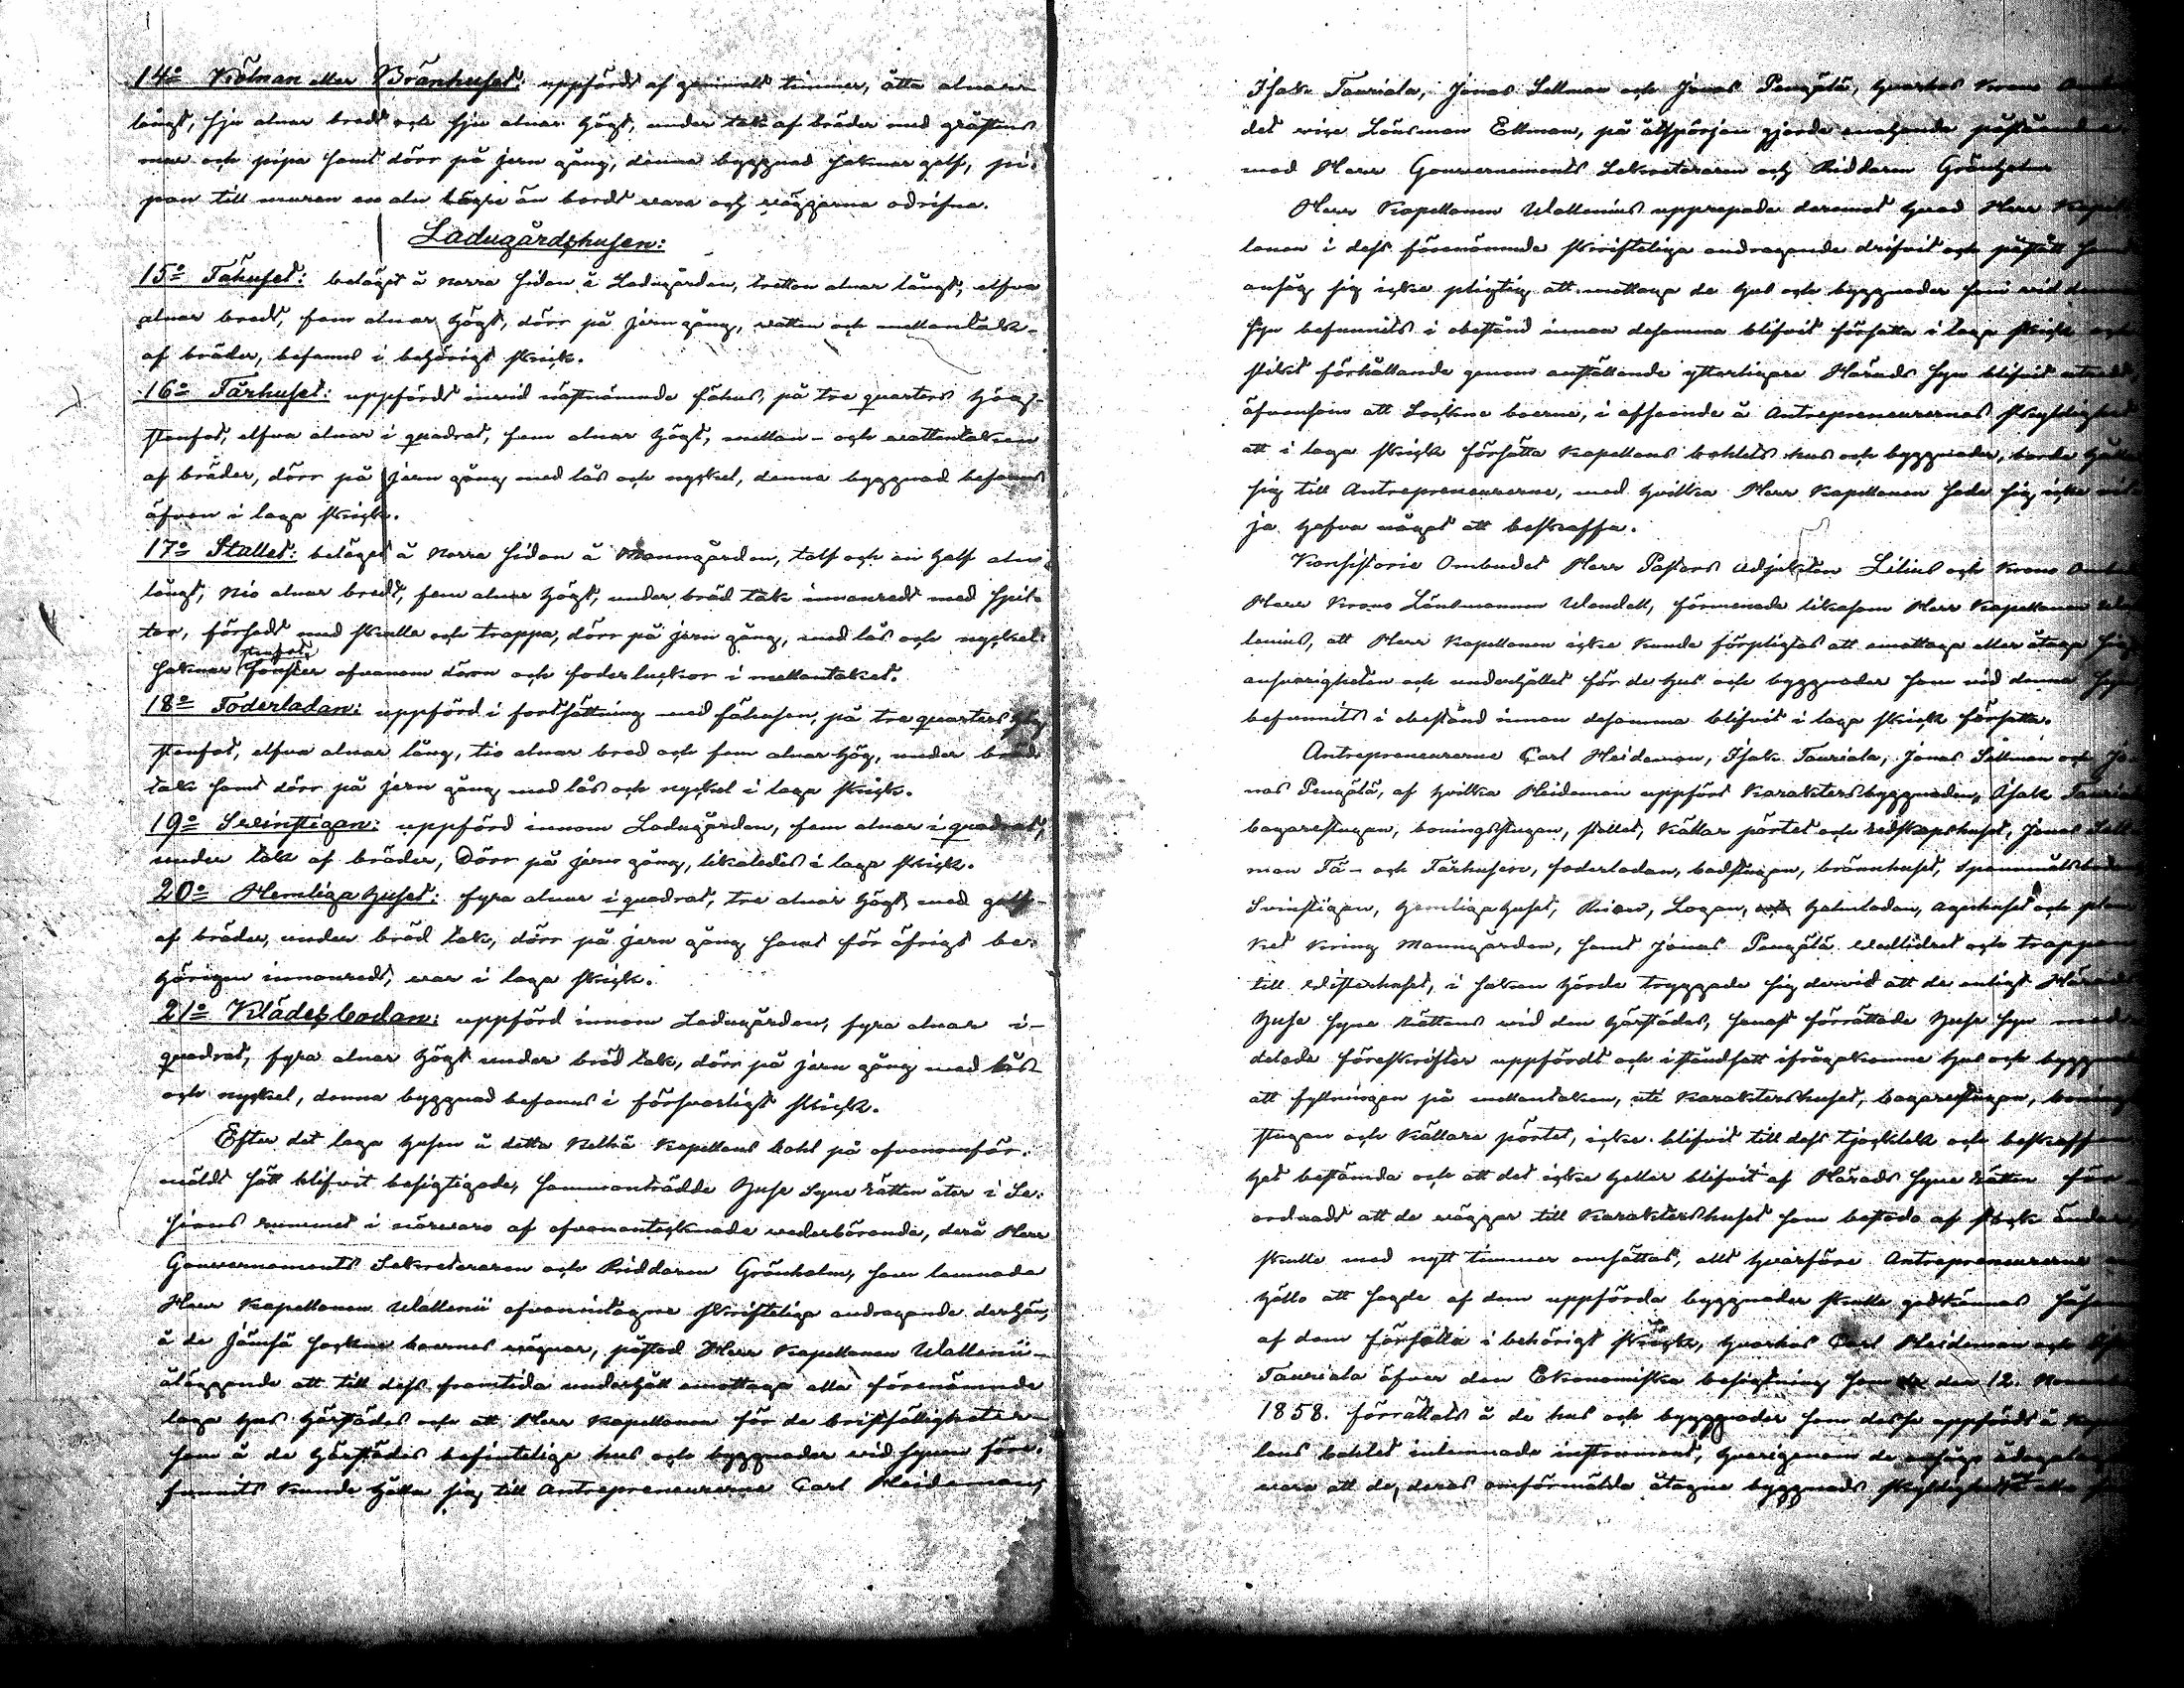 14o Kölnan eller Bränhuset: uppfördt af gammalt timmer, åtta alnar
långt, sju alnar bredt och sju alnar högt, under tak af bräder med gråstens
mur och pipa samt dörr på jern gång, denna byggnad saknar golf, pi-
pan till muren en aln lägre än bordt vara och väggarna odrifne.
Ladugårdshusen:
15o Fähuset: beläget å Norra sidan å Ladugården, tretton alnar långt, elfva
alnar bredt, fem alnar högt, dörr på jern gång, vatten och mellantak
af bräder, befanns i behörigt skick.
16o Fårhuset: uppfördt invid nästnämnde fähus, på tre quarters hög
stenfot, elfva alnar i quadrat, fem alnar högt, mellan- och vattentaken
af bräder, dörr på jern gång med lås och nyckel, denna byggnad befanns
äfven i laga skick.
17o Stallet: beläget å Norra sidan å Manngården, tolf och en half aln
långt, nio alnar bredt, fem alnar högt, under bräd tak innanredt med spil-
tor, försedt med skulle och trappa, dörr på jern gång, med lås och nyckel
saknar stenfot, fönster ofvanom dörrn och foderluckor i mellantaket.
18o Foderladan: uppförd i fortsättning med fähusen, på tre quarters hög
stenfot, elfva alnar lång, tio alnar bred och fem alnar hög, under bräd
tak samt dörr på jern gång med lås och nyckel i laga skick.
19o Svinstigan: uppförd innom Ladugården, fem alnar i quadrat,
under tak af bräder, Dörr på jern gång, likaledes i laga skick.
20o Hemliga huset: fyra alnar i quadrat, tre alnar högt, med golf
af bräder, under bräd tak, dörr på jern gång samt för öfrigt be-
hörigen innanredt, var i laga skick.
21o Klädesbodan: uppförd innom Ladugården, fyra alnar i
quadrat, fyra alnar högt under bräd tak, dörr på jern gång med lås
och nyckel, denna byggnad befanns i försvarligt skick.
Efter det laga husen å detta Kelhä Kapellans bohl på ofvanomför-
mäldt sätt blifvit besigtigade, sammanträdde Huse Syne rätten åter i Se-
sions rummet i närvaro af ofvanantecknade vederbörande, derå Herr
Gouvernements Sekreteraren och Riddaren Grönholm, som lemnade
Herr Kapellanen Wallenii ofvanintagne skriftliga andragande derhän,
å de Jämsä Sockne boernes vägnar, påstod Herr Kapellanen Wallenii
åläggande att till dess framtida underhåll emottaga alla förenämnde
laga hus härstädes och att Herr Kapellanen för de bristfälligheter
som å de härstädes befintelige hus och byggnader vid synen före-
funnits kunde hålla sig till Antrepreneurerne Carl Heideman,
Isak Tauriala, Jonas Sellman och Jonas Pengälä, hvarhos Krono
det vice Länsman Ekman, på åtspörjan gjorde enahanda påstående
med Herr Gouvernements Sekreteraren och Riddaren Grönholm
Herr Kapellanen Wallenius upprepade deremot hvad Herr
lanen i dess förenämnde skrifteliga andragande drifvit och påstått
ansåg sig icke pligtig att mottaga de hus och byggnader som vid
syn befunnits i obestånd innan desamma blifvit försatta i laga skick
slikt förhållande genom anställande ytterligare Härads Syn blifvit
äfvensom att Sockne boerne, i afseende å Antrepreneurernas skyldighet
att i laga skick försätta Kapellans bohlets hus och byggnader, borde
sig till Antrepreneurerne, med hvilka Herr Kapellanen sade sig icke vil-
ja hafva något att beskaffa.
Konsistorie Ombudet Herr Pastors Adjunkten Lilius och Krono
Herr Krono Länsmannen Wendell, förmenade likasom Herr Kapellanen
lenius, att Herr Kapellanen icke kunde förpligtas att emottaga eller åtaga sig
ansvarigheten och underhållet för de hus och byggnader som vid denna syn
befunnits i obestånd innan desamma blifvit i laga skick försatta.
Antrepreneurerne Carl Heideman, Isak Tauriala, Jonas Sellman och Jo-
nas Pengälä, af hvilka Heideman uppfört Karaktersbyggnaden, Isak
bagarestugan, boningsstugan, stallet, Källar pörtet och redskapshuset, Jonas
man Fä- och Fårhusen, foderladan, badstugan, brännhuset,
Svinstigan, hemliga huset, Rian, Logan, halmladan, agnhuset och plan-
ket kring Manngården, samt Jonas Pengälä vedlidret och trappan
till Visterhuset, i saken hörde tryggade sig dervid att de enligt
Huse Syne Rättens vid den härstädes, senast förrättade Huse Syn med-
delade föreskrifter uppfördt och iståndsatt ifrågakomne hus och
att fyllningen på mellantaken, uti Karaktershuset, bagarestugan,
stugan och Källare pörtet, icke blifvit till dess tjocklek och
het bestämda och att det icke heller blifvit af Härads Syne Rätten för-
ordnadt att de väggar till Karaktershuset som bestodo af
skulle med nytt timmer omsättas, allt hvarföre Antrepreneurerne
höllo att sagde af dem uppförda byggnader skulle godkännas
af dem försätta i behörigt skick, hvarhos Carl Heideman och
Tauriala öfver den Ekonomiska besigtning som den 12.
1858. förrättats å de hus och byggnader som desse uppfördt å
lans bohlet inlemnade instrument, hvarigenom de
vara att de, deras omförmälda åtagne byggnads skyldighet